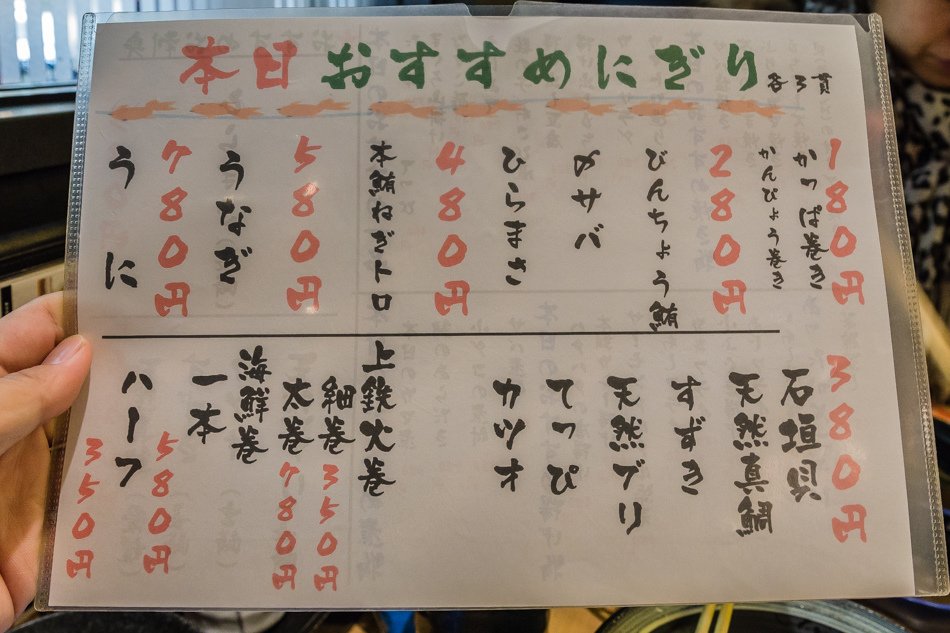 本日おすすめにぎり
各3貫
180円
かっぱ巻き
かんぴょう巻き
280円
びんちょう鮪
〆サバ
ひらまさ
480円
本鮪ねぎトロ
580円
うなぎ
780円
うに
380円
石垣貝
天然真鯛
すずき
天然ブリ
てっぴ
カツオ
上鉄火巻
細巻 350円
太巻 780円
海鮮巻
一本 580円
ハーフ 350円